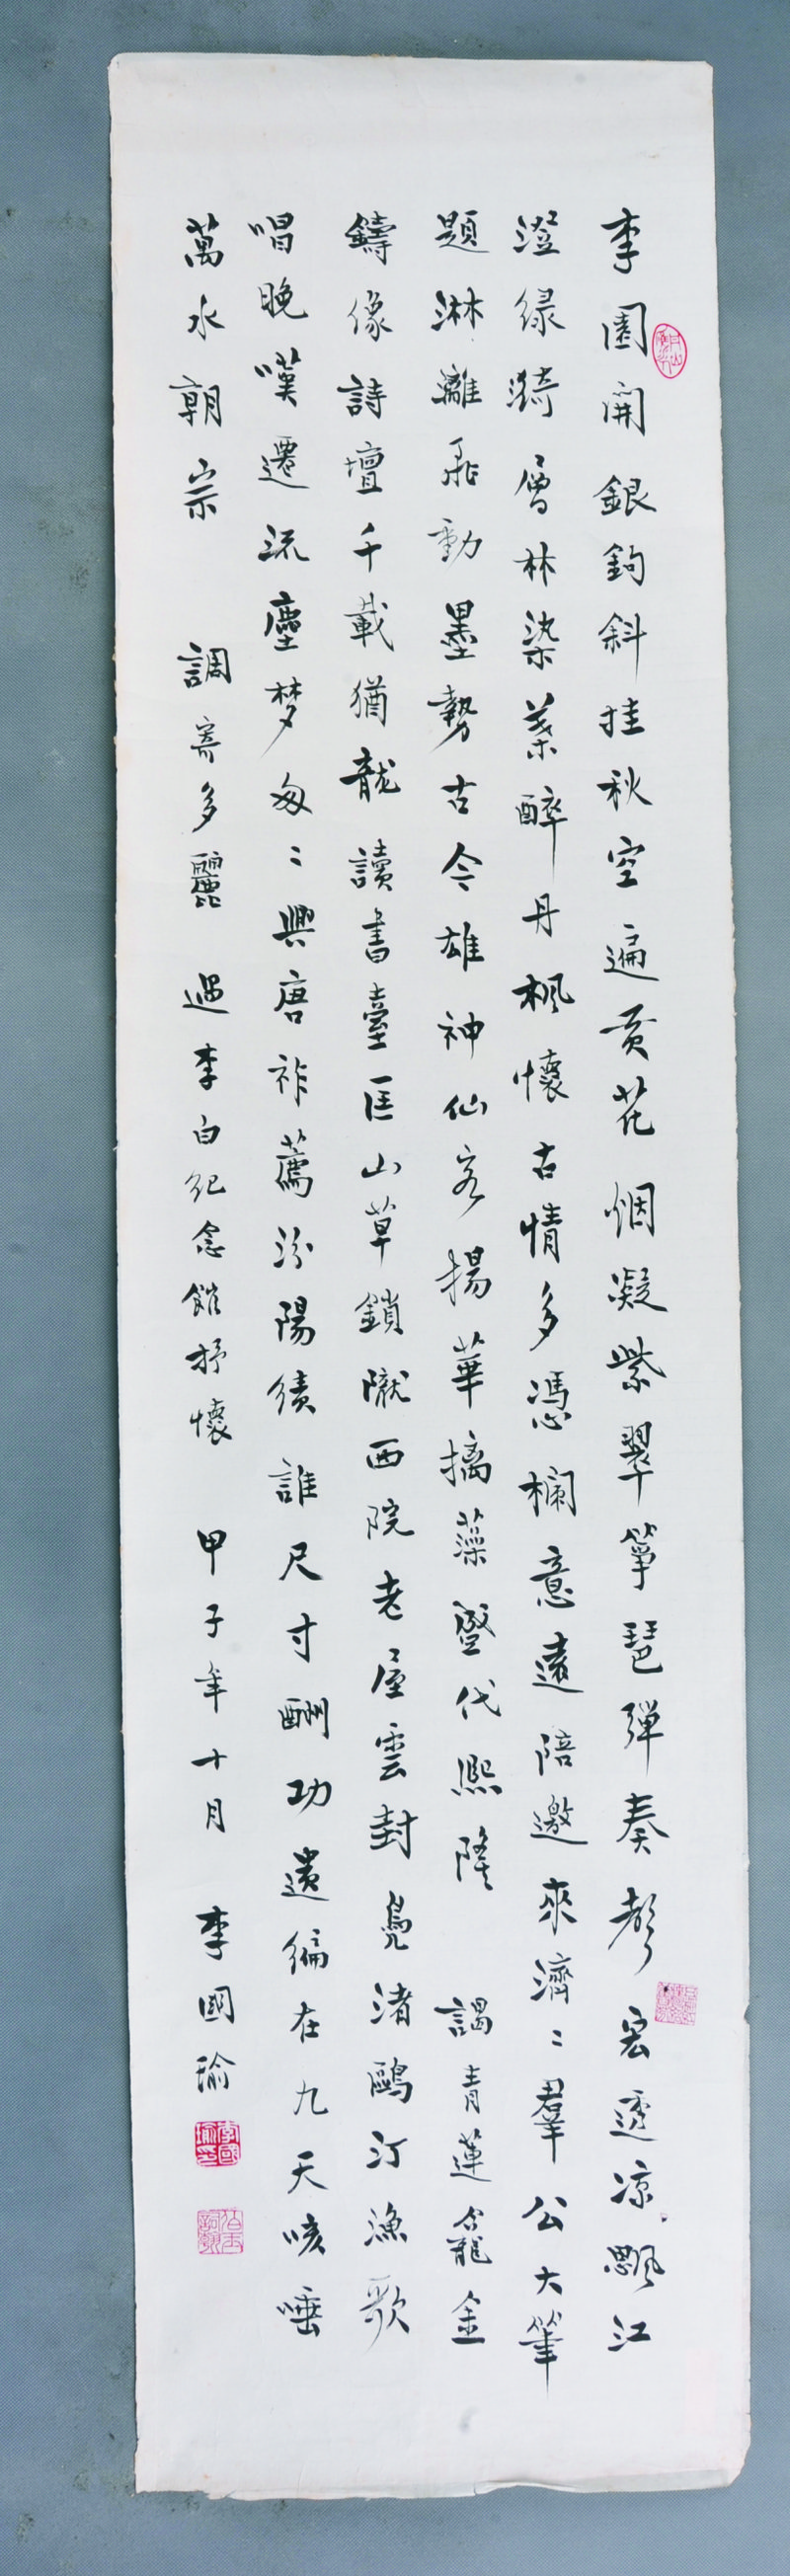 李園開銀鉤斜挂秋空遍黄花烟凝紫翠箏琶彈奏聲宏透凉飔江
澄绿漪層林染葉醉丹枫懷古情多憑欄意遠陪邀來濟〻羣公大筆
題淋灕飛動墨勢古今雄神仙客揚華摛藻盛代熙隆　謁青蓮龕金
鑄像詩壇千載猶龍讀書臺匡山草鎖隴西院老屋雲封鳧渚鷗汀漁歌
唱晚嘆遷流塵梦匆〻興唐祚薦汾陽績誰尺寸酬功遺編在九天咳唾
萬水朝宗　調寄多麗　過李白纪念館抒懷　甲子年十月　李國瑜
李國瑜印